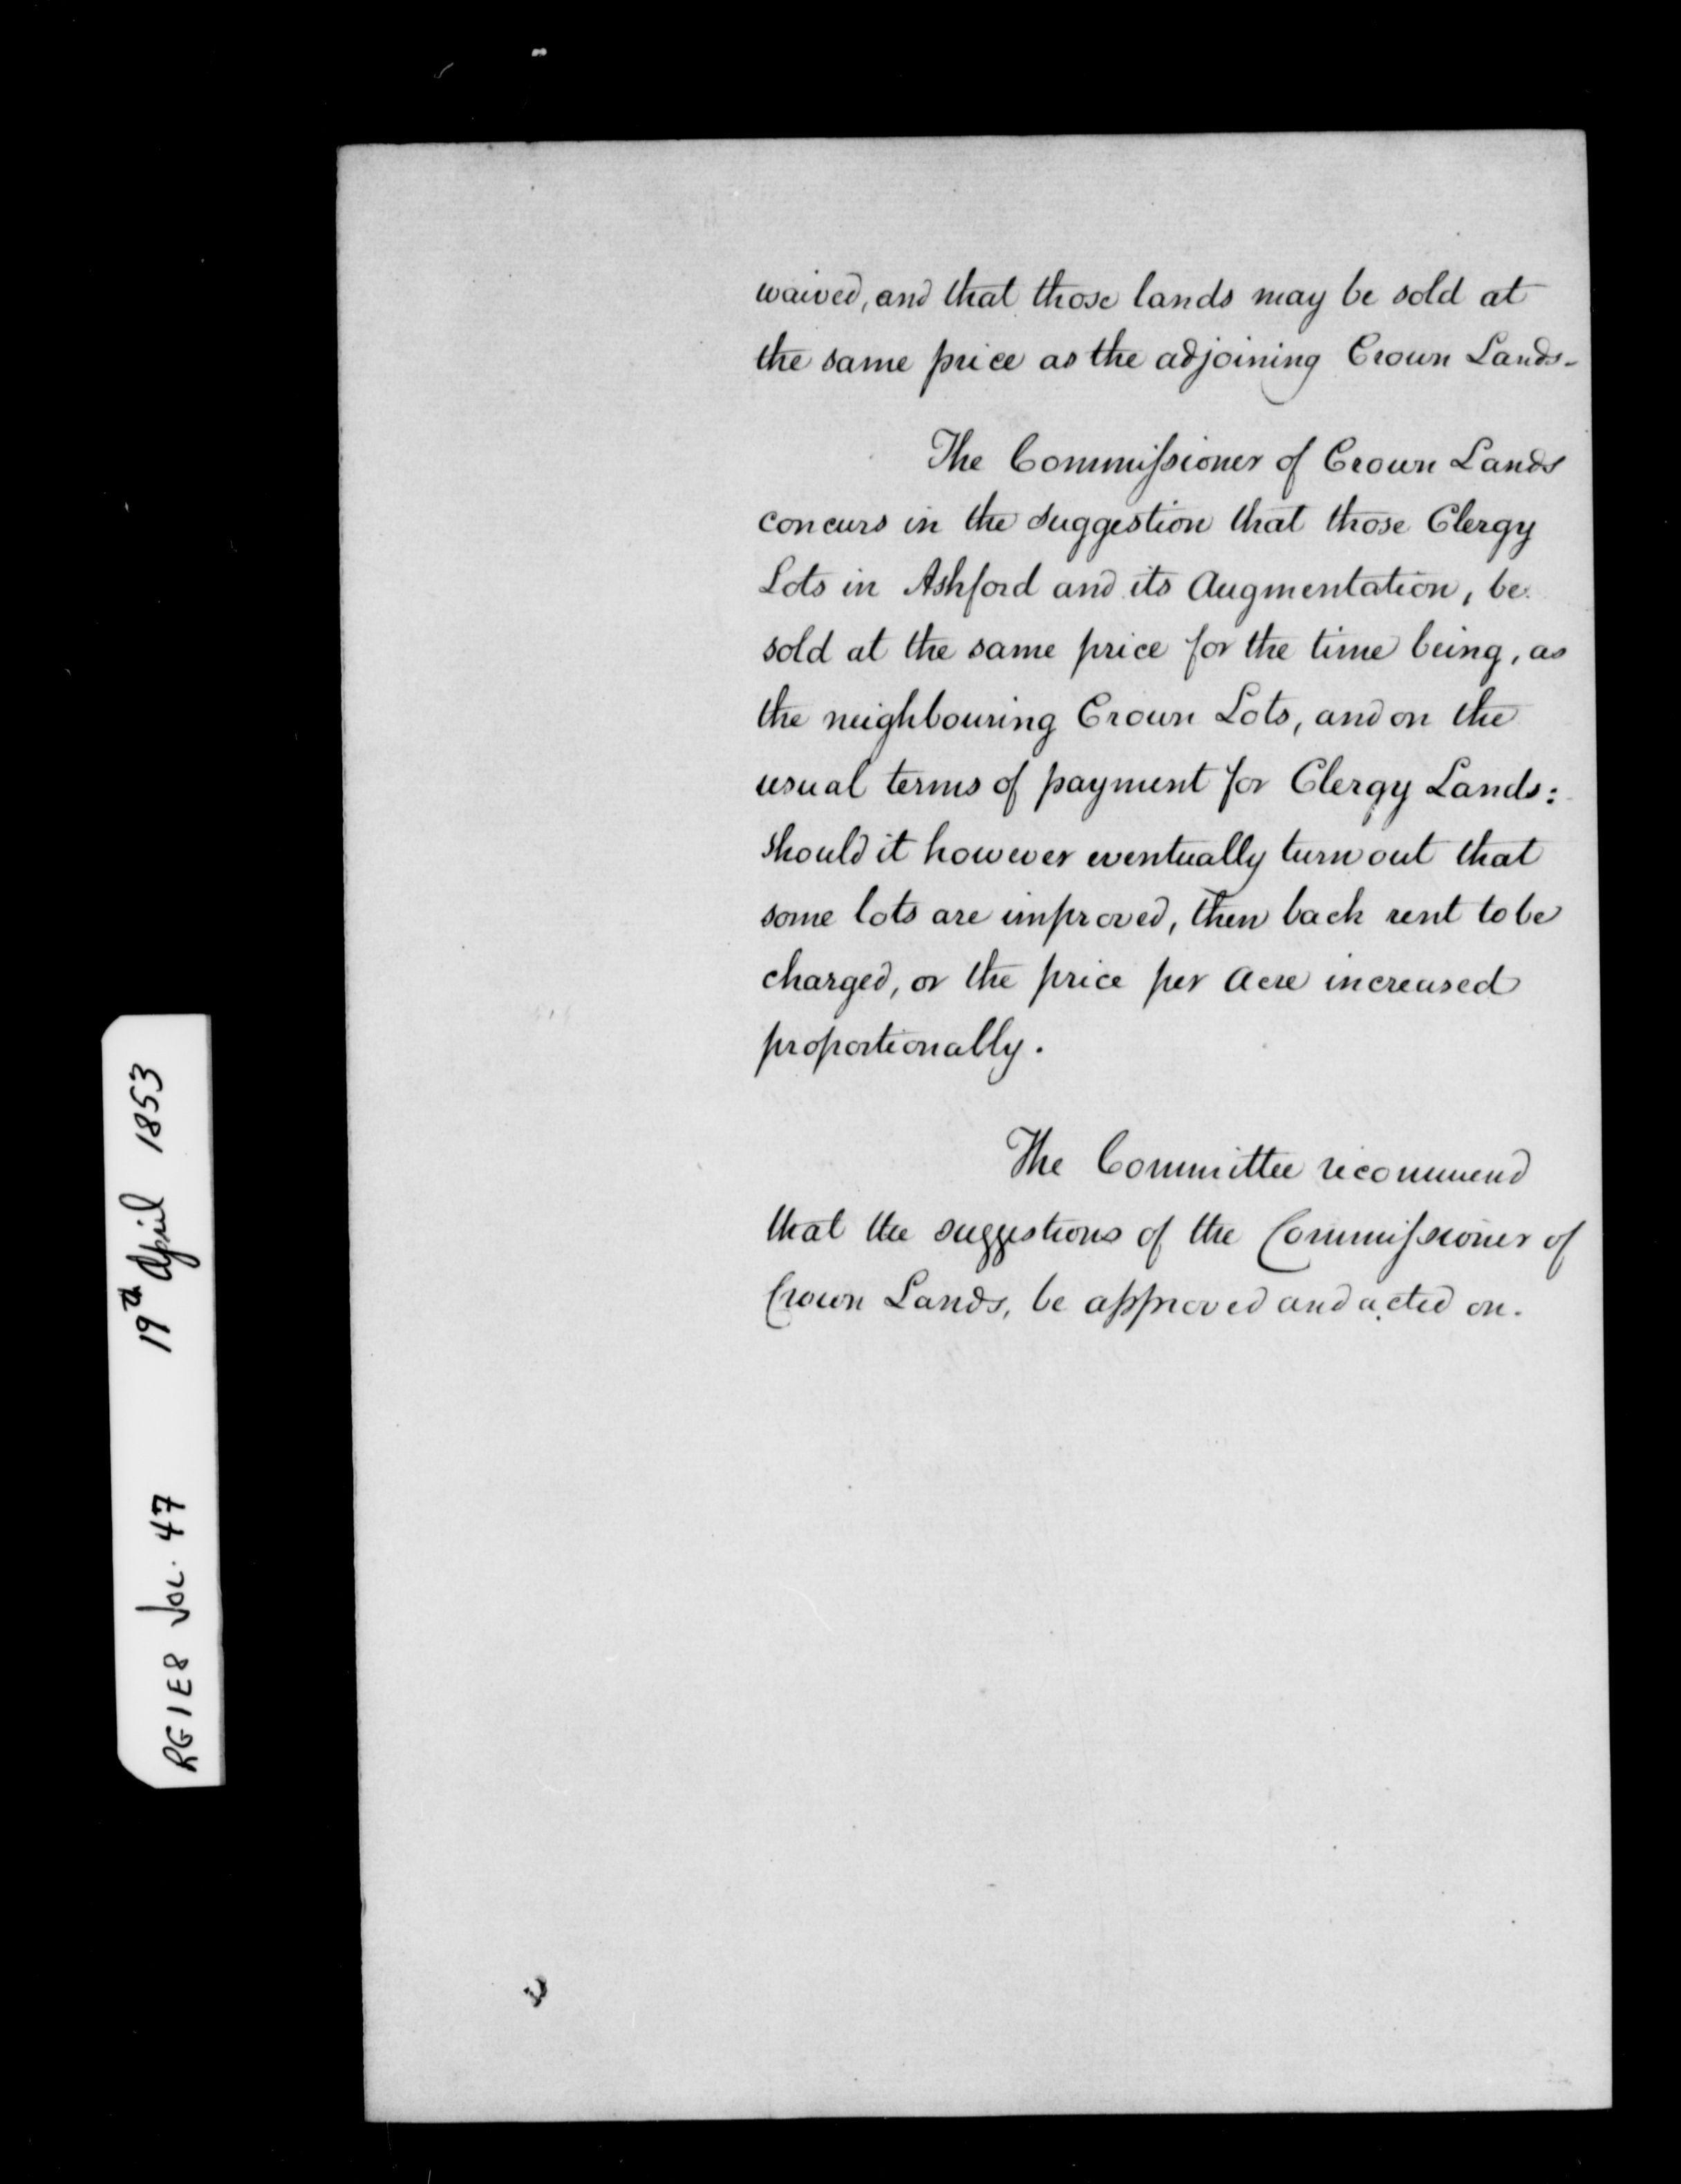 waived, and that those lands may be sold at
the same price as the adjoining Crown Lands-
The Commiſsioner of Crown Lands
concurs in the suggestion that those Clergy
Lots in Ashford and its Augmentation, be
sold at the same price for the time being, as
the neighbouring Crown Lots, and on the
usual terms of payment for Clergy Lands:
should it however eventually turn out that
some lots are improved, then back rent to be
charged, or the price per Acre increased
proportionally.
The Committee recommend
that the suggestions of the Commiſsioner of
Crown Lands, be approved and acted on.
RG1E8 VOL. 47 19th April 1853